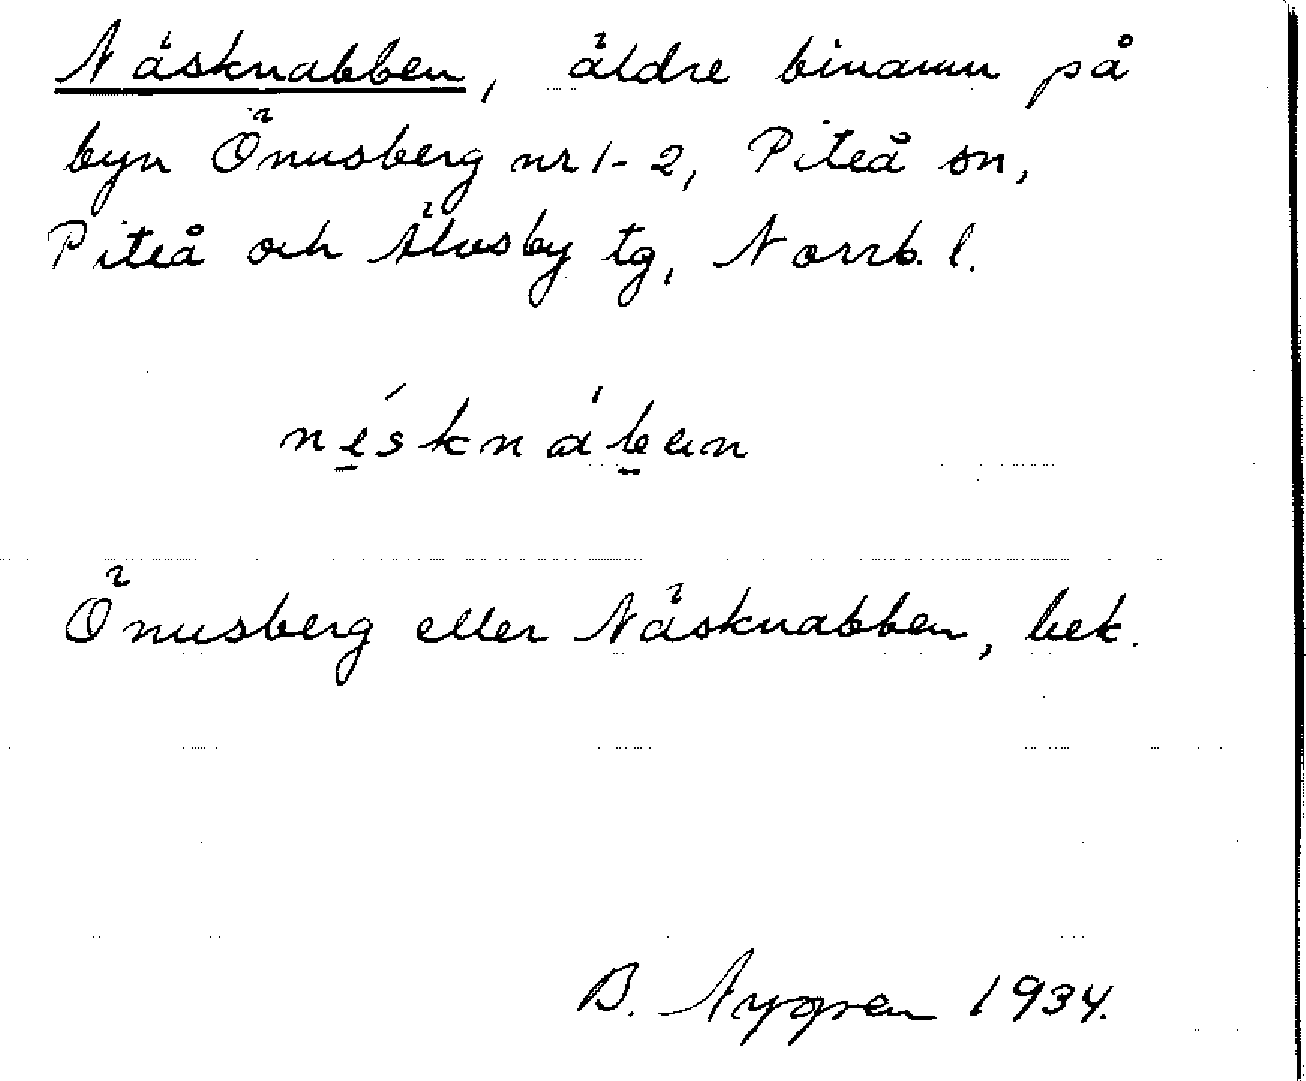 Näsknabben, äldre binamn på
byn Önusberg nr 1-2, Piteå sn,
Piteå och Älvsby tg, Norrb. l.
Önusberg eller Näsknabben, bek.
B. Nygren 1934.